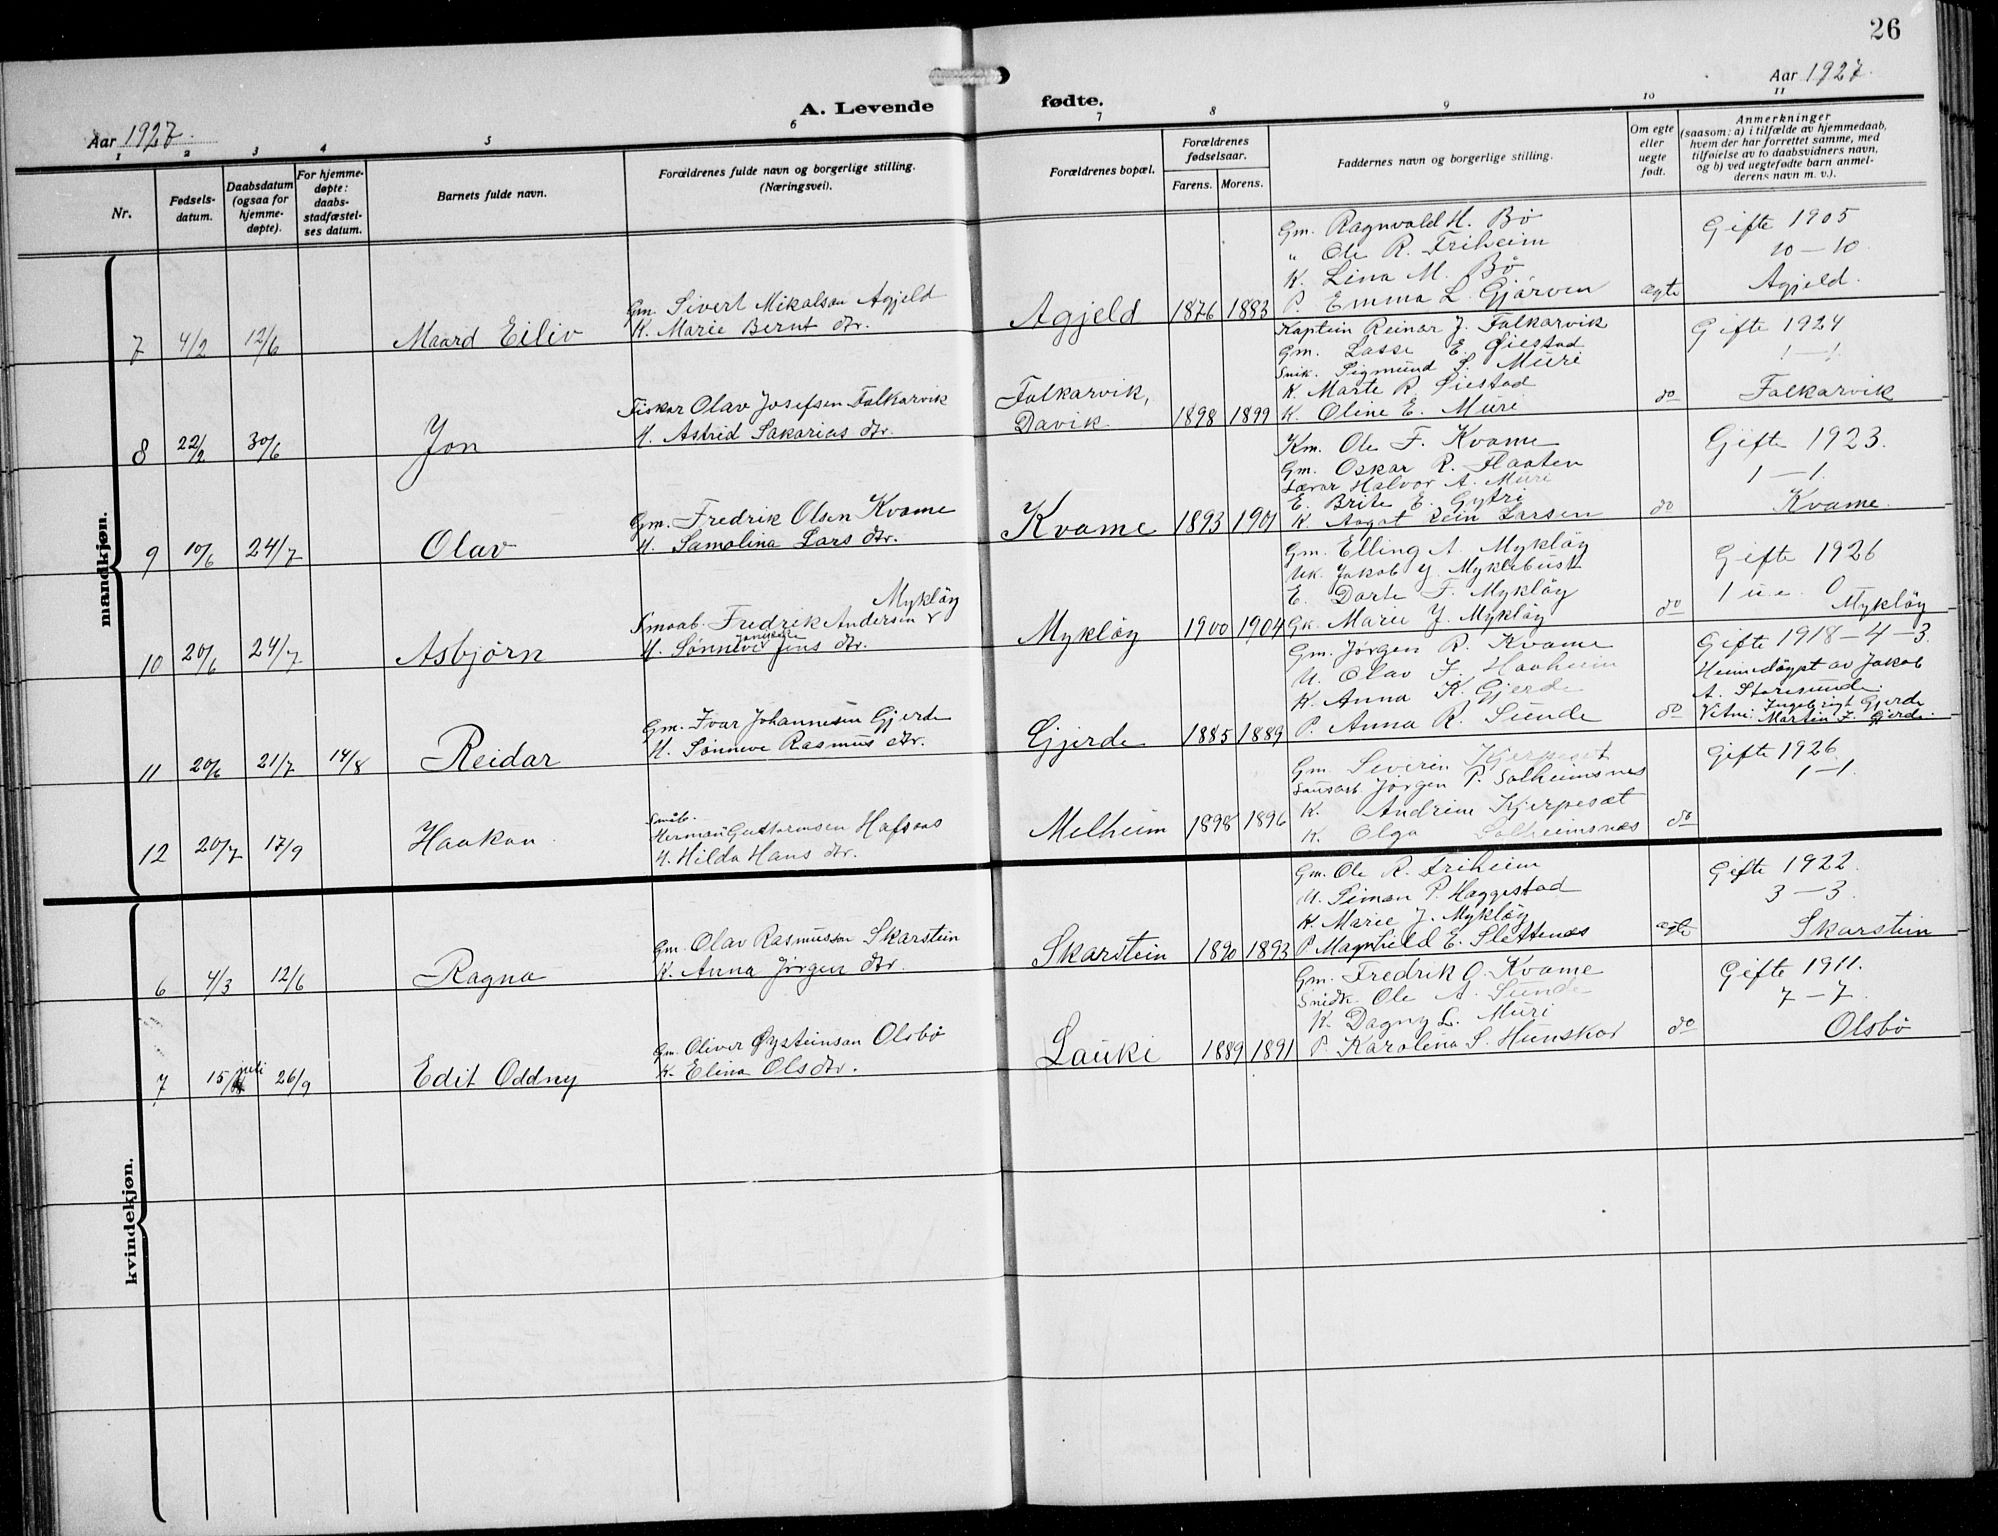 26
Aar 1927.
Aar 1927.
A. Levende fødte.
1 2 3 4 5 6 7 8 9 10 11
Nr.
Fødsels-
datum.
Daabsdatum
(ogsaa for
hjemme-
døpte).
For hjemme-
døpte:
daabs-
stadfæstel-
ses datum.
Barnets fulde navn.
Forældrenes fulde navn og borgerlige stilling.
(Næringsvei).
Forældrenes bopæl.
Forældrenes
fødselsaar.
Farens. Morens.
Faddernes navn og borgerlige stilling.
Om egte
eller
uegte
født.
Anmerkninger
(saasom: a) i tilfælde av hjemmedaab,
hvem der har forrettet samme, med
tilføielse av to daabsvidners navn,
og b) ved uegtefødte barn anmel-
derens navn m. v.).
mandkjøn.
7 4/2 12/6 Maard Eiliv
Gm. Sivert Mikalsen Agjeld
K. Marie Bernt dtr.
Agjeld 1876 1883
Gm. Ragnvald H. Bö
" Ole R. Friheim
K. Lina M. Bö
P. Emma L. Gjörven
ægte
Gifte 1905
10 – 10
Agjeld.
8 22/2 30/6 Jon
Fiskar Olav Josefsen Falkarvik
H. Astrid Sakarias dtr.
Falkarvik,
Davik 1898 1899
Kaptein Reinar J. Falkarvik
Gm. Lasse E. Öiestad
Snik. Sigmund S. Muri
K. Marte R. Öiestad
K. Oline E. Muri
do
Gifte 1924
1 – 1
Falkarvik
9 10/6 24/7 Olav
Gm. Fredrik Olsen Kvame
H. Samolina Lars dtr.
Kvame 1893 1901
Km. Ole F. Kvame
Gm. Oskar R. Flaaten
Lærar Halvor A. Muri
E. Brite E. Gytri
K. Aagot Larsen
do
Gifte 1923.
1 – 1.
Kvame.
10 20/6 24/7 Asbjörn
Myklöy
Smaab. Fredrik Andersen
H. Sönneve Jens dtr.
Myklöy 1900 1904
Gm. Elling A. Myklöy
Uk. Jakob J. Myklebust
E. Dorte F. Myklöy
Gk. Marie J. Myklöy
do
Gifte 1926
1 u.e. 0
Myklöy
11 20/6 21/7 14/8 Reidar
Gm. Ivar Johannesen Gjerde
H. Sönneve Rasmus dtr.
Gjerde 1885 1889
Gm. Jørgen R. Kvame
U. Olav J. Haaheim
K. Anna K. Gjerde
P. Anna R. Sunde
do
Gifte 1918 – 4 – 3.
Heimedöypt av Jakob
A. Storesunde.
Vitni: Ingebrigt Gjerde
Martin J. Gjerde.
12 20/7 17/9 Haakon
Småb.
Herman Guttormsen Hafsaas
H. Hilda Hans dtr.
Melheim 1898 1896
Gm. Severin Kjerpeset
Jörgen P. Solheimsnes
K. Andrine Kjerpeset
K. Olga Solheimsnes
do
Gifte 1926.
1 – 1.
kvindekjøn.
6 4/3 12/6 Ragna
Gm. Olav Rasmusson Skarstein
K. Anna Jörgen dtr.
Skarstein 1890 1893
Gm. Ole R. Friheim
U. Simon P. Haggestad
K. Marie J. Myklöy
P. Magnhild E. Slettenes
ægte
Gifte 1922.
3 – 3
Skarstein
7 15/juli 26/9 Edit Oddny
Gm. Oliver Øysteinson Olsbö
K. Elina Ols dtr.
Lauki 1889 1891
Gm. Fredrik O. Kvame
Snidk. Ole A. Sunde
K. Dagny L. Muri
P. Karolina S. Hunskor
do
Gifte 1911.
7 – 7.
Olsbö